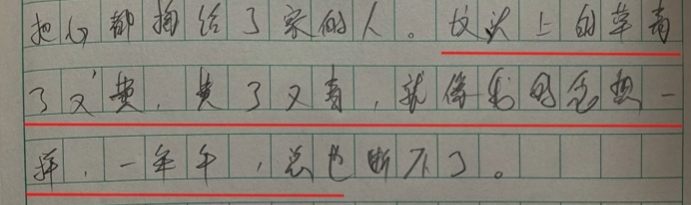 把心都掏给了家的人。坟头上的草青
了又黄，黄了又青，就像我的思想一
样，一年年，总也断不了。